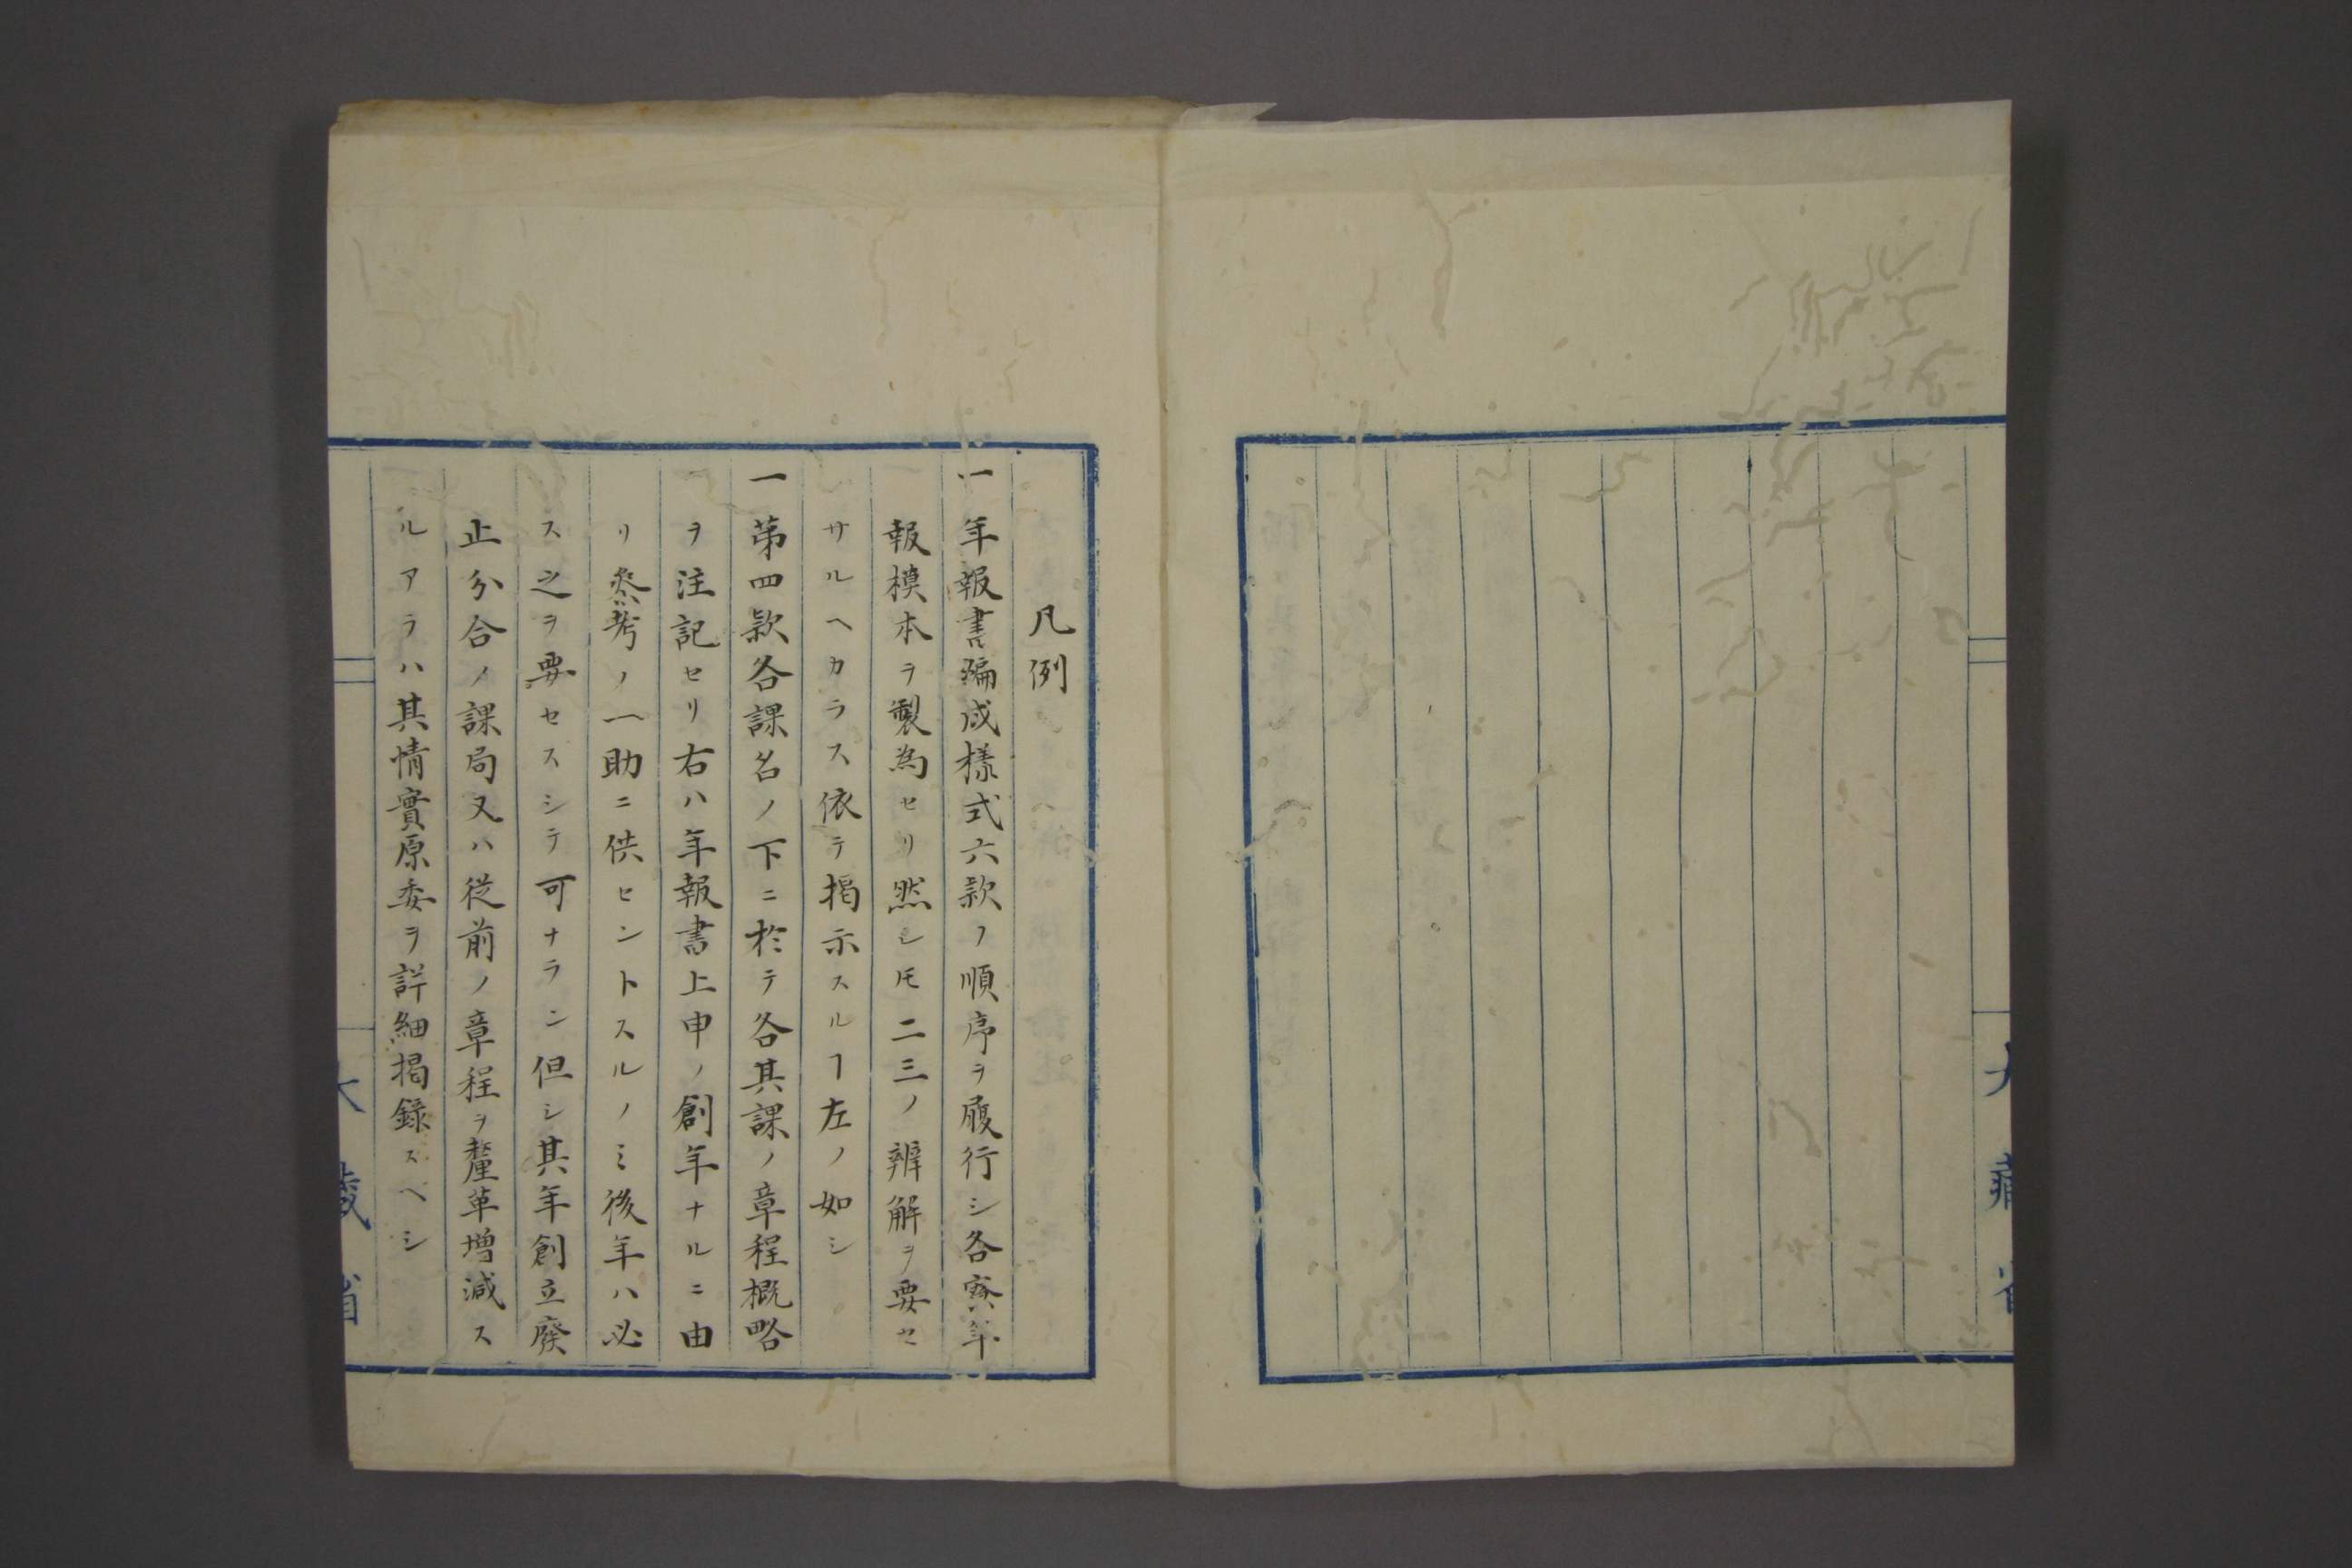 大藏省
凡例
一年報書編成様式六款ノ順序ヲ履行シ各寮年
報模本ヲ製為セリ然シ𪜈二三ノ辨解ヲ要セ
サルヘカラス依テ掲示スルヿ左ノ如シ
一第四款各課名ノ下ニ於テ各其課ノ章程概略
ヲ注記セリ右ハ年報書上申ノ創年ナルニ由
リ叅考ノ一助ニ供センドスルノミ後年ハ必
ス之ヲ要セスシテ可ナラン但シ其年創立廢
止分合ノ課局又ハ從前ノ章程ヲ釐革増減ス
ルアラハ其情實原委ヲ詳細掲録スヘシ
大藏省